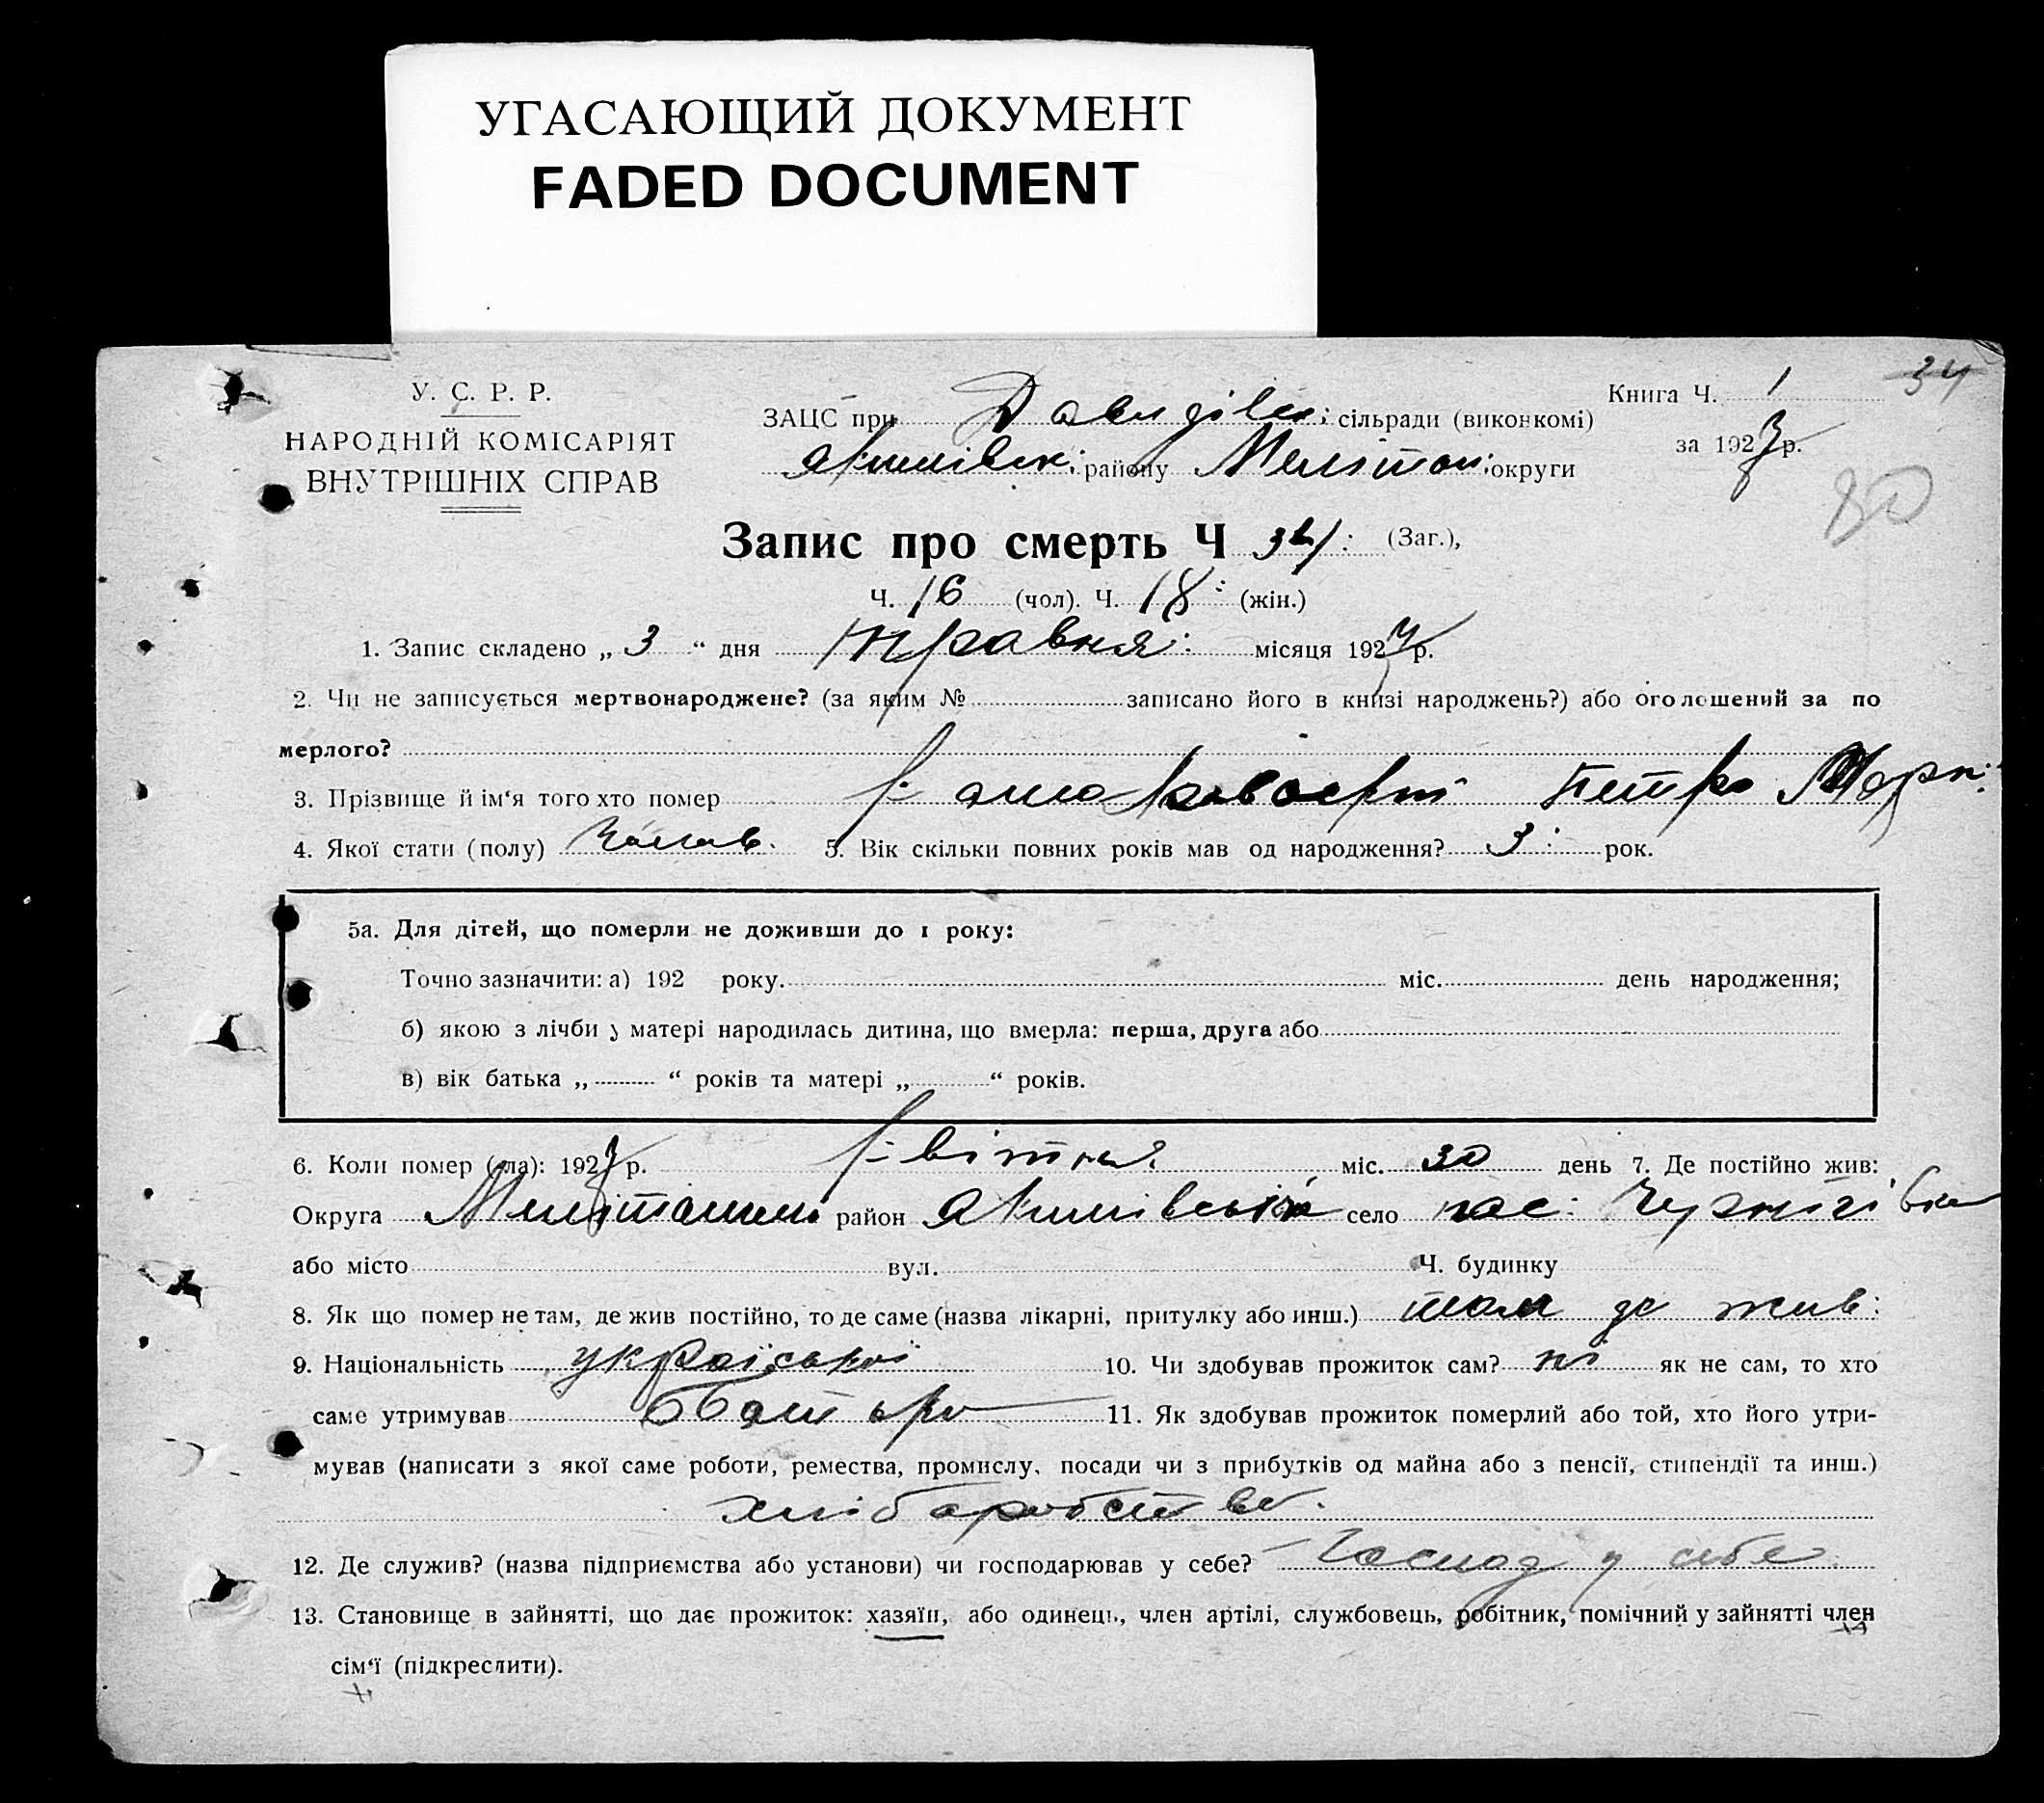 УГАСАЮЩИЙ ДОКУМЕНТ
FADED DOCUMENT
34
У. С. Р. Р.
НАРОДНІЙ КОМІСАРІЯТ
ВНУТРІШНІХ СПРАВ
ЗАЦС при Давидівск: сільради (виконкомі)
Якимівск: району Меліտоп: округи
Книга Ч. 1
за 1927 р.
80
Запис про смерть Ч 34: (Заг.),
Ч. 16 (чол). Ч. 18: (жін.)
1. Запис складено „ 3 “ дня травня: місяця 1927 р.
2. Чи не записується мертвонароджене? (за яким № записано його в книзі народжень?) або оголошений за по
мерлого?
3. Прізвище й ім‘я того хто помер Петро Марк:
4. Якої стати (полу) Чолов. 5. Вік скільки повних років мав од народження? 3: рок.
5а. Для дітей, що померли не доживши до 1 року:
Точно зазначити: а) 192 року. міс. день народження;
б) якою з лічби у матері народилась дитина, що вмерла: перша, друга або
в) вік батька „ “ років та матері „ “ років.
6. Коли помер (ла): 1927 р. Квітня міс. 30 день 7. Де постійно жив:
Округа район Якимівськ село пос: Чернігівка
або місто вул. Ч. будинку
8. Як що помер не там, де жив постійно, то де саме (назва лікарні, притулку або инш.) там де жив:
9. Національність 10. Чи здобував прожиток сам? ні як не сам, то хто
саме утримував батько 11. Як здобував прожиток померлий або той, хто його утри-
мував (написати з якої саме роботи, ремества, промислу, посади чи з прибутків од майна або з пенсії, стипендії та инш.)
хлібаробство.
12. Де служив? (назва підприємства або установи) чи господарював у себе? Господ у себе
13. Становище в зайнятті, що дає прожиток: хазяїн, або одинець, член артілі, службовець, робітник, помічний у зайнятті член
сім‘ї (підкреслити).